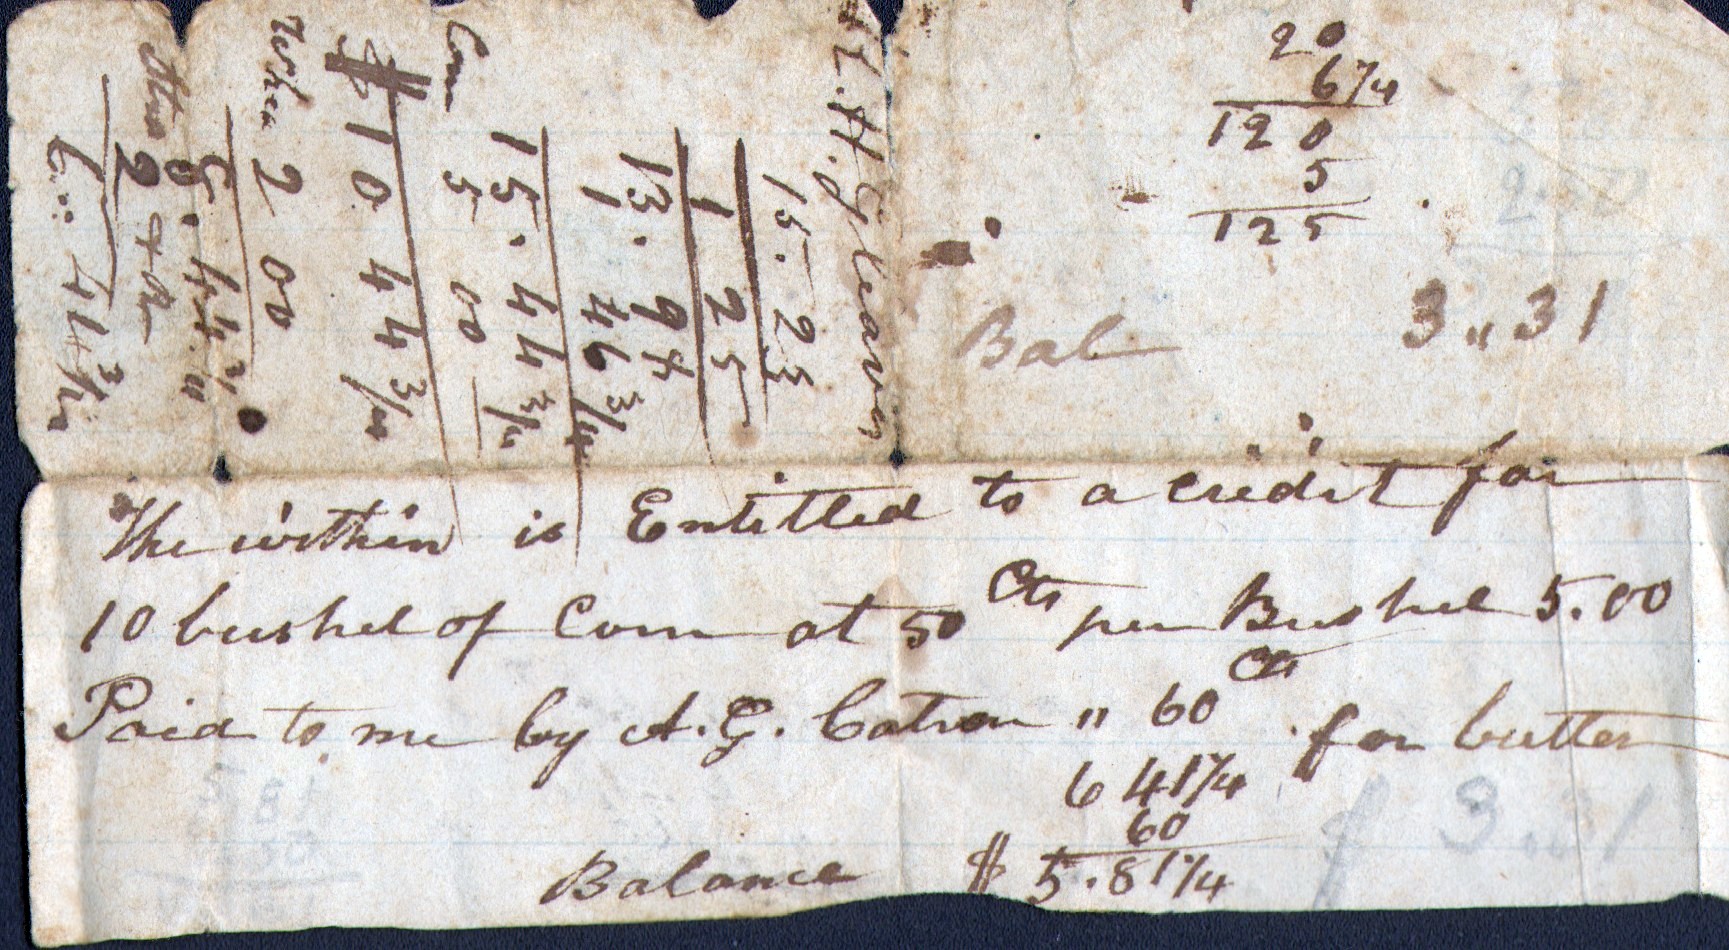 20
6 1/4
120
5
125
Bal 3 " 31
15.25
1 25
13.97
1 46 3/4
15.44 3/4
Corn 5 00
$10 44 3/4
2 00
8.44 3/4
2
6... 44 3/4
The within is Entitled to a credit for
10 bushel of Corn at 50 Cts per Bushel 5.00
Paid to me by A.G. Catron " 60 Cts for butter
6 41 1/4
60
Balance $ 5.81 1/4
$ 3 " 31